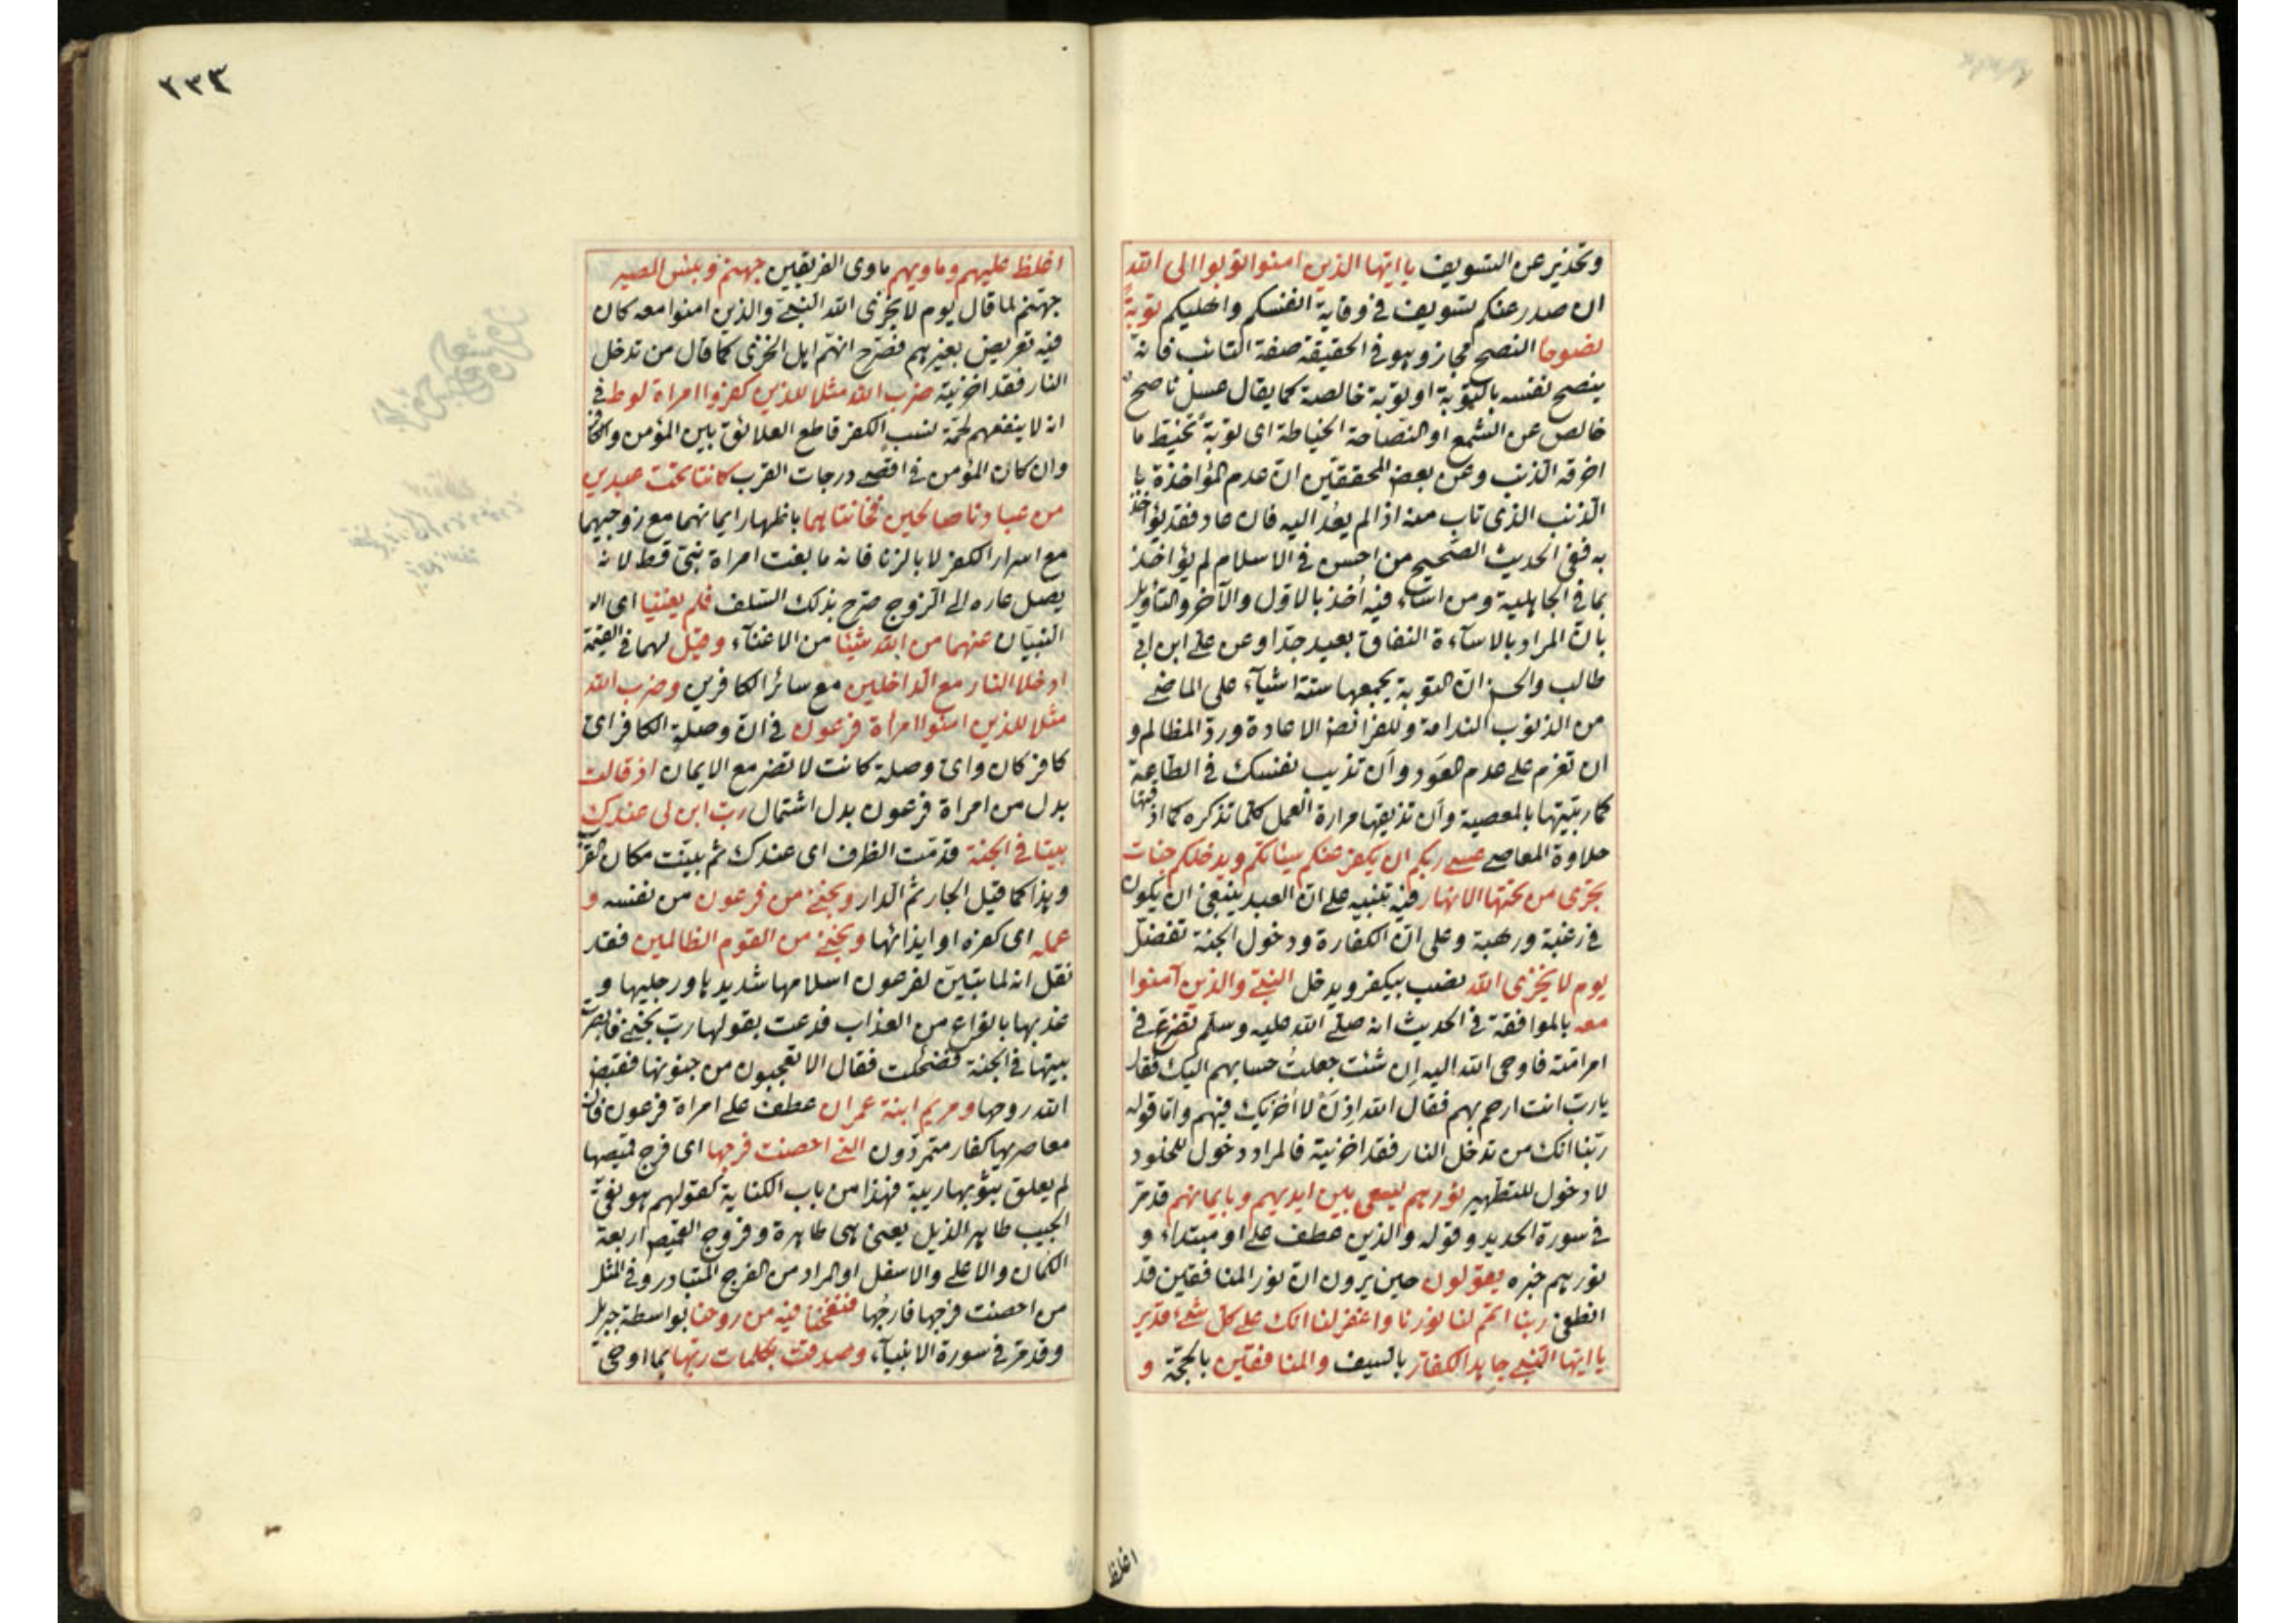 وتحذير عن التسويف يا ايها الذين امنوا توبوا الى الله
ان صدر عنكم تسويف في وقاية انفسكم واهليكم توبةً
نصوحا النصح مجاز وهو في الحقيقة صفة التائب فانه
ينصح نفسه بالتوبة او توبة خالصة كما يقال عسل ناصح
خالص عن الشمع او النصاحة الخياطة اى توبةً تخيط ما
اخرقه الذنب وعن بعض المحققين انّ عدم المؤاخذة با
الذنب الذى تاب منه اذا لم يعُد اليه فان عاد فقد يؤاخذ
به ففى الحديث الصحيح من احسن في الاسلام لم يؤاخذ
بما في الجاهلية ومن اساء فيه اُخذ بالاول والآخر والتاويل
بانّ المراد بالاسآءة النفاق بعيد جدّا وعن على ابن ابي
طالب والحسن انّ التوبة يجمعها ستة اشيآء على الماضى
من الذنوب الندامة وللفرائض الاعادة وردّ المظالم و
ان تعزم على عدم العَود وأن تذيب نفسك في الطاعة
كما ربّيتها بالمعصية وأن تذيقها مرارة العمل كلما تذكره كما اذقتها
حلاوة المعاصى عسى ربكم ان يكفر عنكم سيئاتكم ويدخلكم جنات
تجرى من تحتها الانهار فيه تنبيه على انّ العبد ينبغى ان يكون
في رغبة ورهبة وعلى انّ الكفارة ودخول الجنة تفضّل
يوم لا يخزى الله نصب بيكفر ويدخل النبىّ والذين آمنوا
معه بالموافقة في الحديث انه صلى الله عليه وسلم تضرّع في
امر امّته فاوحى الله اليه اِن شئت جعلتُ حسابهم اليك فقال
يا ربّ انت ارحم بهم فقال الله اِذنْ لا اُخزيك فيهم وامّا قوله
ربّنا انك من تدخل النار فقد اخزيته فالمراد دخول للخلود
لا دخول للتطهير نورهم يسعى بين ايديهم وبايمانهم قد مرّ
في سورة الحديد وقوله والذين عطف على او مبتداء و
نورهم خبره يقولون حين يرون انّ نور المنافقين قد
انطفئ ربنا اتمم لنا نورنا واغفر لنا انك على كل شئ قدير
يا ايها النبى جاهد الكفار بالسيف والمنافقين بالحجّة و
اغلظ
٢٣٤
اغلظ عليهم وماويهم ماوى الفريقين جهنم وبئس المصير
جهنم لما قال يوم لا يخزى الله النبىّ والذين امنوا معه كان
فيه تعريض بغيرهم فصرّح انهم اهل الخزى كما قال من تدخل
النار فقد اخزيته ضرب الله مثلا للذين كفروا امراة لوط في
انه لا ينفعهم لحمة نسب الكفر قاطع العلائق بين المؤمن والكافر
وان كان المؤمن في اقصى درجات القرب كانتا تحت عبدين
من عبادنا صالحين فخانتاهما باظهار ايمانهما مع زوجيهما
مع اسرار الكفر لا بالزنا فانه ما بغت امراة نبىّ قط لانه
يصل عاره الى الزوج صرّح بذلك السّلف فلم يغنيا اى
النبيّان عنهما من الله شيئا من الاغنآء وقيل لهما في القيمة
ادخلا النار مع الداخلين مع سائر الكافرين وضرب الله
مثلا للذين امنوا امرأة فرعون في انّ وصلة الكافر اى
كافر كان واىّ وصلة كانت لا تضر مع الايمان اذ قالت
بدل من امراة فرعون بدل اشتمال ربّ ابن لى عندك
بيتا في الجنة قدمت الظرف اى عندك ثم بينت مكان القرب
وهذا كما قيل الجار ثم الدار ونجنى من فرعون من نفسه و
عمله اى كفره او ايذائها ونجنى من القوم الظالمين فقد
نقل انه لما تبيّن لفرعون اسلامها شد يديها ورجليها و
عذبها بانواع من العذاب فدعت بقولها ربّ نجنى فابصرت
بيتها في الجنة فضحكت فقال الا تعجبون من جنونها فقبض
الله روحها ومريم ابنة عمران عطف على امراة فرعون فان
معاصريها كفار متمردون التى احصنت فرجها اى فرج قميصها
لم يعلق بثوبها ريبة فهذا من باب الكناية كقولهم هو نقىّ
الجيب طاهر الذيل يعنى هى طاهرة وفروج القميص اربعة
الكمّان والاعلى والاسفل او المراد من الفرج المتبادر وفي المثل
من احصنت فرجها فارجُها فنفخنا فيه من روحنا بواسطة جبريل
وقد مرّ في سورة الانبيآء وصدقت بكلمات ربها بما اوحى